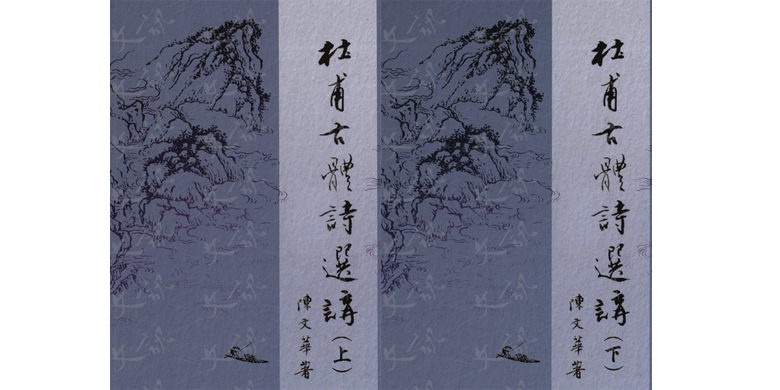 杜甫古體詩選講（上）
陳文華著
杜甫古體詩選講（下）
陳文華著